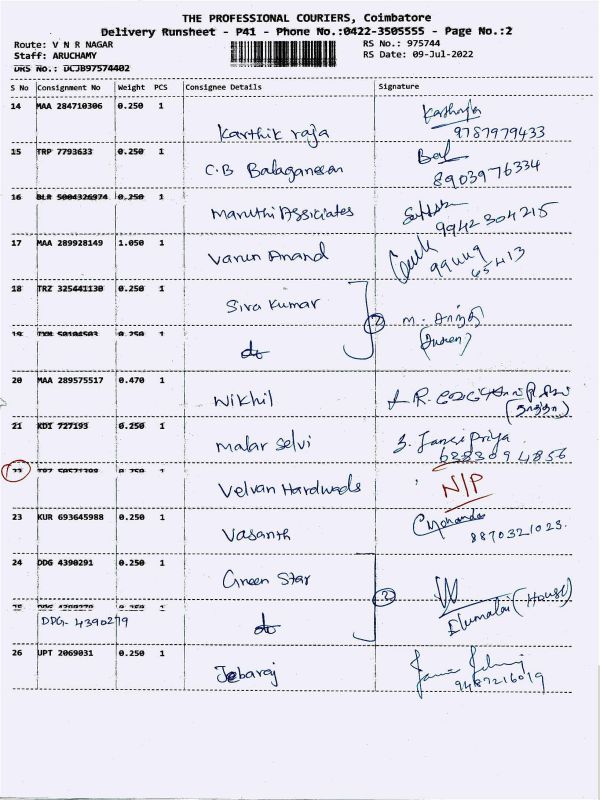 THE PROFESSIONAL COURIERS, Coimbatore
Delivery Runsheet - P41 - Phone No.:0422-3505555 - Page No.:2
Route: V N R NAGAR RS No.: 975744
Staff: ARUCHAMY RS Date: 09-Jul-2022
DRS No.: DCJB97574402
S No Consignment No Weight PCS Consignee Details Signature
14 MAA 284710306 0.250 1
Karthik raja 9787979433
15 TRP 7793633 0.250 1
C.B Balaganesan 8903976334
16 BLR 5004326974 0.250 1
Maruthi Assiciates 9942304215
17 MAA 289928149 1.050 1
Varun Anand 99449
65413
18 TRZ 325441130 0.250 1
Siva Kumar
2
19 0.250 1
do
20 MAA 289575517 0.470 1
Nikhil
21 KDI 727193 0.250 1
Malar Selvi
22 0.250 1
Velvan Hardwads N/P
23 KUR 693645988 0.250 1
Vasanth 8870321023.
24 DDG 4390291 0.250 1
Green Star
2
25 0.250 1
DDG- 4390279 do Elumalai (House)
26 UPT 2069031 0.250 1
Jebaraj 9487216019